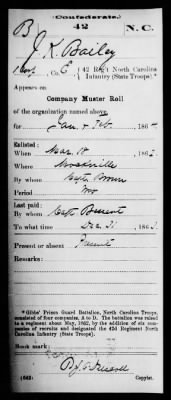 Confederate.
B 42 N.C.
J. K. Bailey
Co. E, 42 Reg't North Carolina
Infantry (State Troops).*
Appears on
Company Muster Roll
of the organization named above,
for Jan & Feb, 186
Enlisted:
When Mar 18, 1862
Where
By whom Capt. Brown
Period War
Last paid:
By whom Capt.
To what time Dec 31, 1863
Present or absent Present
Remarks:
*Gibbs' Prison Guard Battalion, North Carolina Troops,
consisted of four companies, A to D. The battalion was raised
to a regiment about May, 1862, by the addition of six companies
of recruits and designated the 42d Regiment North Carolina
Infantry (State Troops).
Book mark:
(642) Copyist.